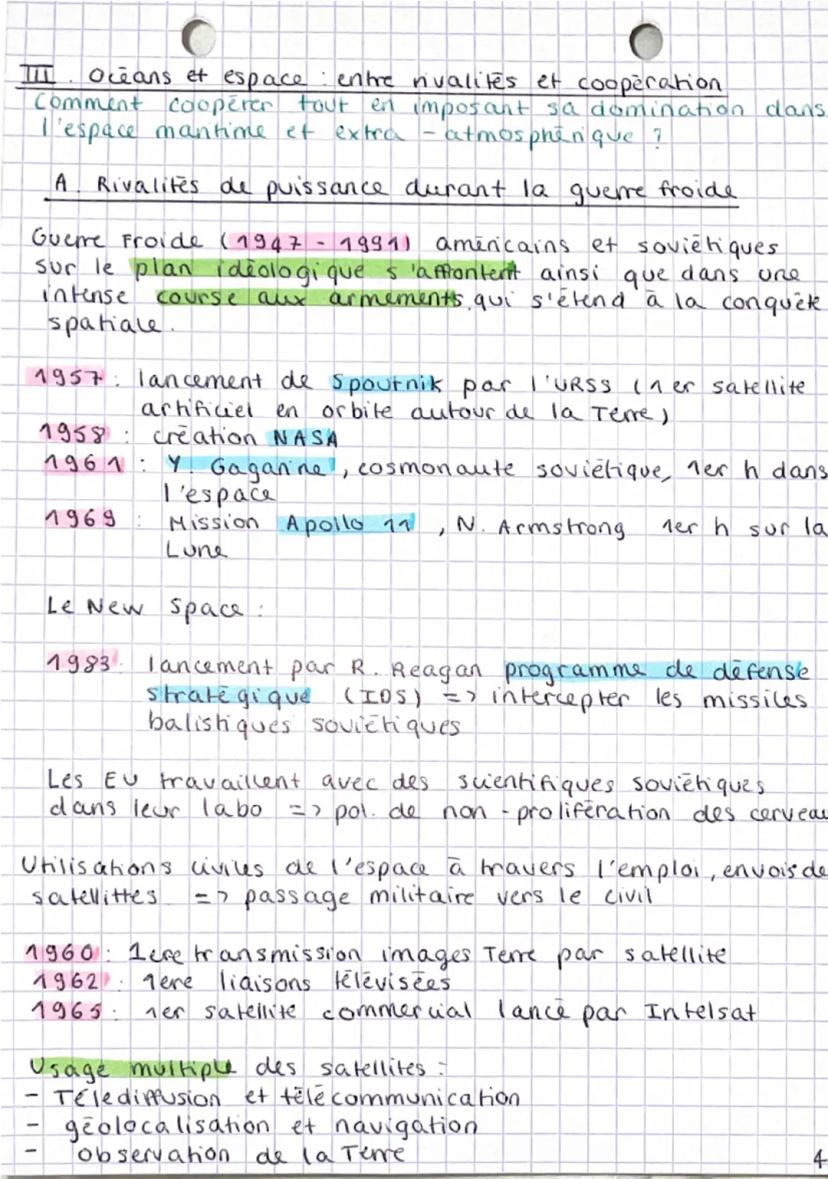 III. Océans et espace : entre rivalités et coopération
Comment coopérer tout en imposant sa domination dans
l'espace maritime et extra-atmosphérique ?
A. Rivalités de puissance durant la guerre froide
Guerre Froide (1947 - 1991) américains et soviétiques
sur le plan idéologique s'affrontent ainsi que dans une
intense course aux armements, qui s'étend à la conquête
spatiale.
1957 : lancement de Spoutnik par l'URSS (1er satellite
artificiel en orbite autour de la Terre)
1958 : création NASA
1961 : Y. Gagarine, cosmonaute soviétique, 1er h dans
l'espace
1969 : Mission Apollo 11, N. Armstrong 1er h sur la
Lune
Le New Space :
1983 : lancement par R. Reagan programme de défense
stratégique (IDS) => intercepter les missiles
balistiques soviétiques
Les EU travaillent avec des scientifiques soviétiques
dans leur labo => pol. de non-prolifération des cerveau
Utilisations civiles de l'espace à travers l'emploi, envois de
satellittes => passage militaire vers le civil
1960 : 1ere transmission images Terre par satellite
1962 : 1ere liaisons télévisées
1965 : 1er satellite commercial lancé par Intelsat
Usage multiple des satellites :
- Télédiffusion et télécommunication
- géolocalisation et navigation
- observation de la Terre
4